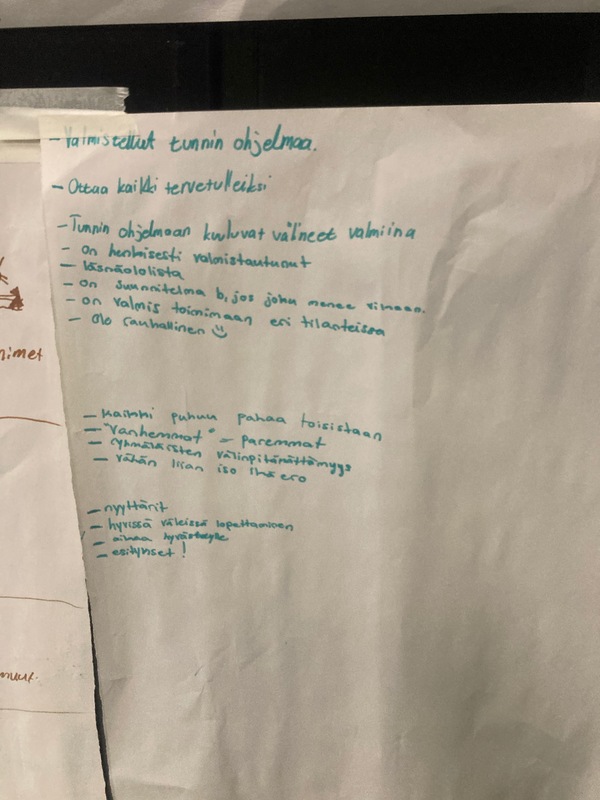 - Valmistellut tunnin ohjelmaa.
- Ottaa kaikki tervetulleiksi
- Tunnin ohjelmaan kuuluvat välineet valmiina
- on henkisesti valmistautunut
- läsnäololista
- on suunnitelma b, jos joku menee vikaan.
- on valmis toimimaan eri tilanteissa
- Olo rauhallinen :)
nimet
- kaikki puhuu pahaa toisistaan
- "vanhemmat" = paremmat
- ryhmäläisten välinpitämättömyys
- vähän liian iso ikäero
- nyyttärit
- hyvissä väleissä lopettaminen
- aikaa hyvästeille
- esitykset!